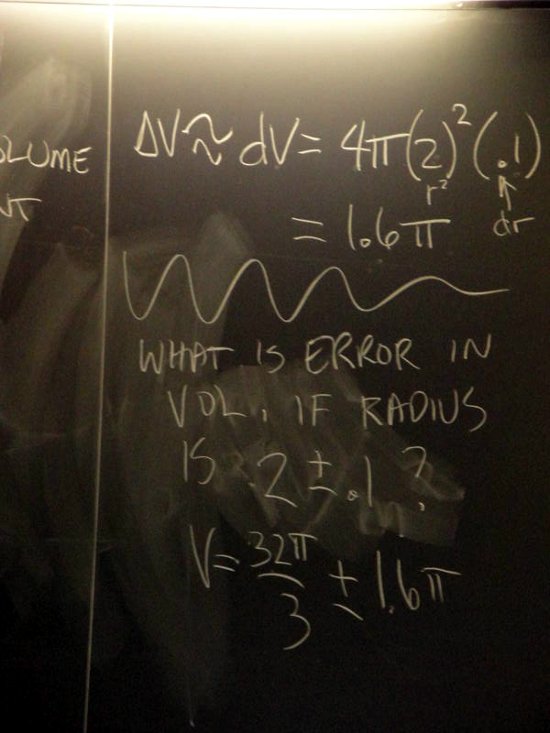 ΔV ≈ dV = 4π(2)²(.1)
r² ↑
= 1.6π dr
WHAT IS ERROR IN
VOL. IF RADIUS
IS 2 ± .1 ?
V = 32π/3 ± 1.6π